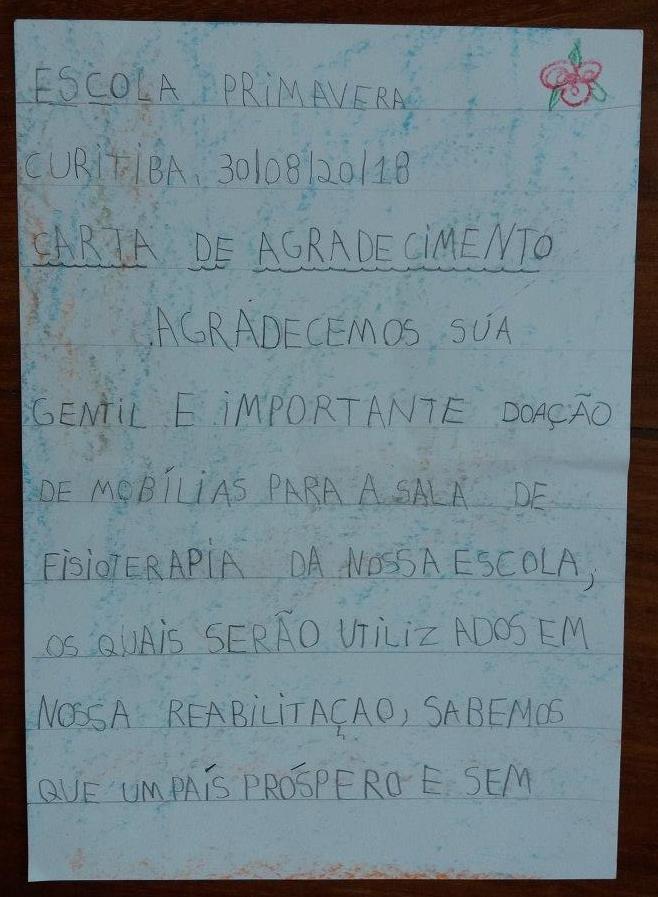 ESCOLA PRIMAVERA
CURITIBA, 30/08/20/18
CARTA DE AGRADECIMENTO
AGRADECEMOS SUA
GENTIL E IMPORTANTE DOAÇÃO
DE MOBÍLIAS PARA A SALA DE
FISIOTERAPIA DA NOSSA ESCOLA,
OS QUAIS SERÃO UTILIZADOS EM
NOSSA REABILITAÇAO, SABEMOS
QUE UM PAÍS PRÓSPERO E SEM